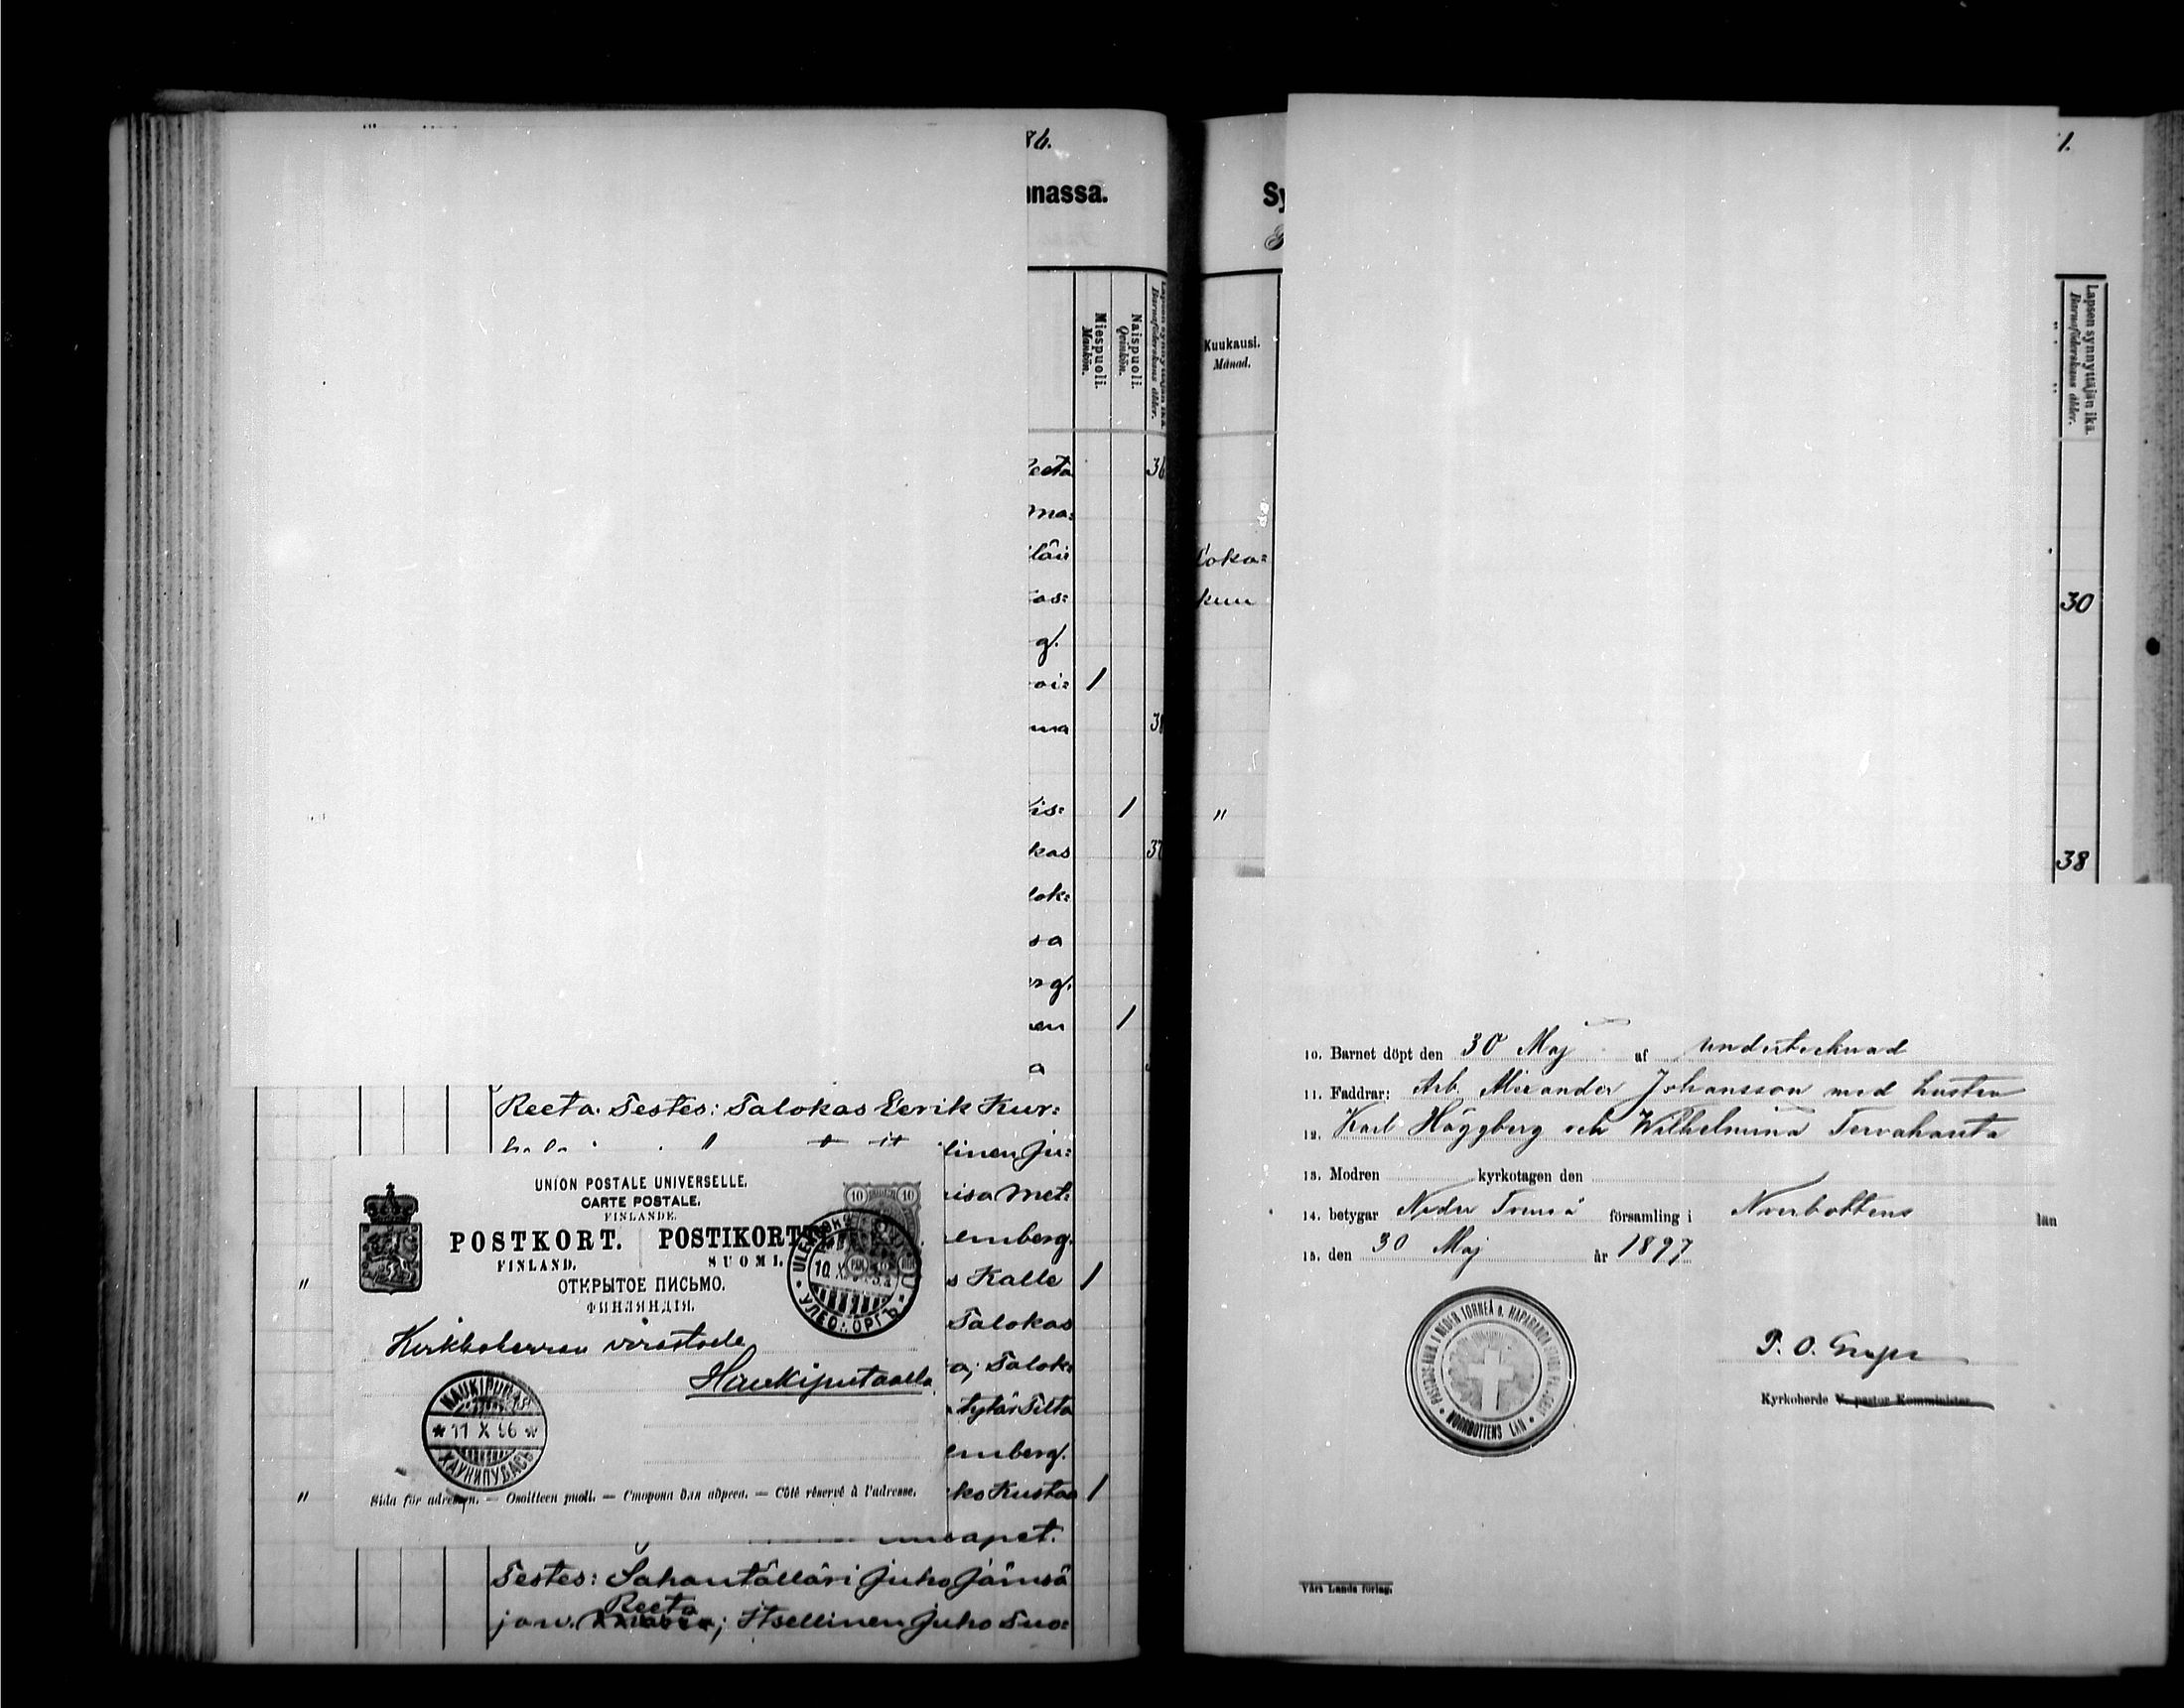 86.
nnassa.
Miespuoli.
Mankön.
Naispuoli.
Qvinkön.
Lapsen synnyttäjän ikä.
Barnaföderskans ålder.
Reeta
36
ma:
läi
as:
g/.
oi: 1
ma
38
is: 1
kas
37
lok:
sa
rg/.
en 1
a
Reeta. Testes: Talokas Eerik Kur:
linen Ju:
isa Met:
emberg.
" s Kalle 1
Talokas
a; Talok:
tytär Tilta
emberg/.
" ko Kustaa 1
apet.
Testes: Sahantälläri Juho Jämsä
Reeta
ja v. ; Itsellinen Juho Suo:
UNION POSTALE UNIVERSELLE.
CARTE POSTALE.
FINLANDE.
POSTKORT. POSTIKORTTI
FINLAND. SUOMI.
ОТКРЫТОЕ ПИСЬМО.
ФИНЛЯНДІЯ.
10 10
10.X
Kirkkoherran virastolle
Haukiputaalla
HAUKIPUDAS
11 X 96
ХАУКИПУДАСЪ
Sida för adressen. — Osoitteen puoli. — Сторона для адреса. — Côté réservé à l'adresse.
1.
Sy
Kuukausi.
Månad.
Lapsen synnyttäjän ikä.
Barnaföderskans ålder.
Loka:
kuu
30
"
38
10. Barnet döpt den 30 Maj af undertecknad
11. Faddrar: Arb. Alexander Johansson med hustru
12. Karl Häggberg och Wilhelmina Tervahauta
13. Modren kyrkotagen den
14. betygar Neder Torneå församling i Norrbottens län
15. den 30 Maj år 1897
PASTORS-EMB. I NEDER TORNEÅ O. HAPARANDA
NORRBOTTENS LÄN
P. O. Grape
Kyrkoherde V. pastor Komminister
Vårt Lands förlag.